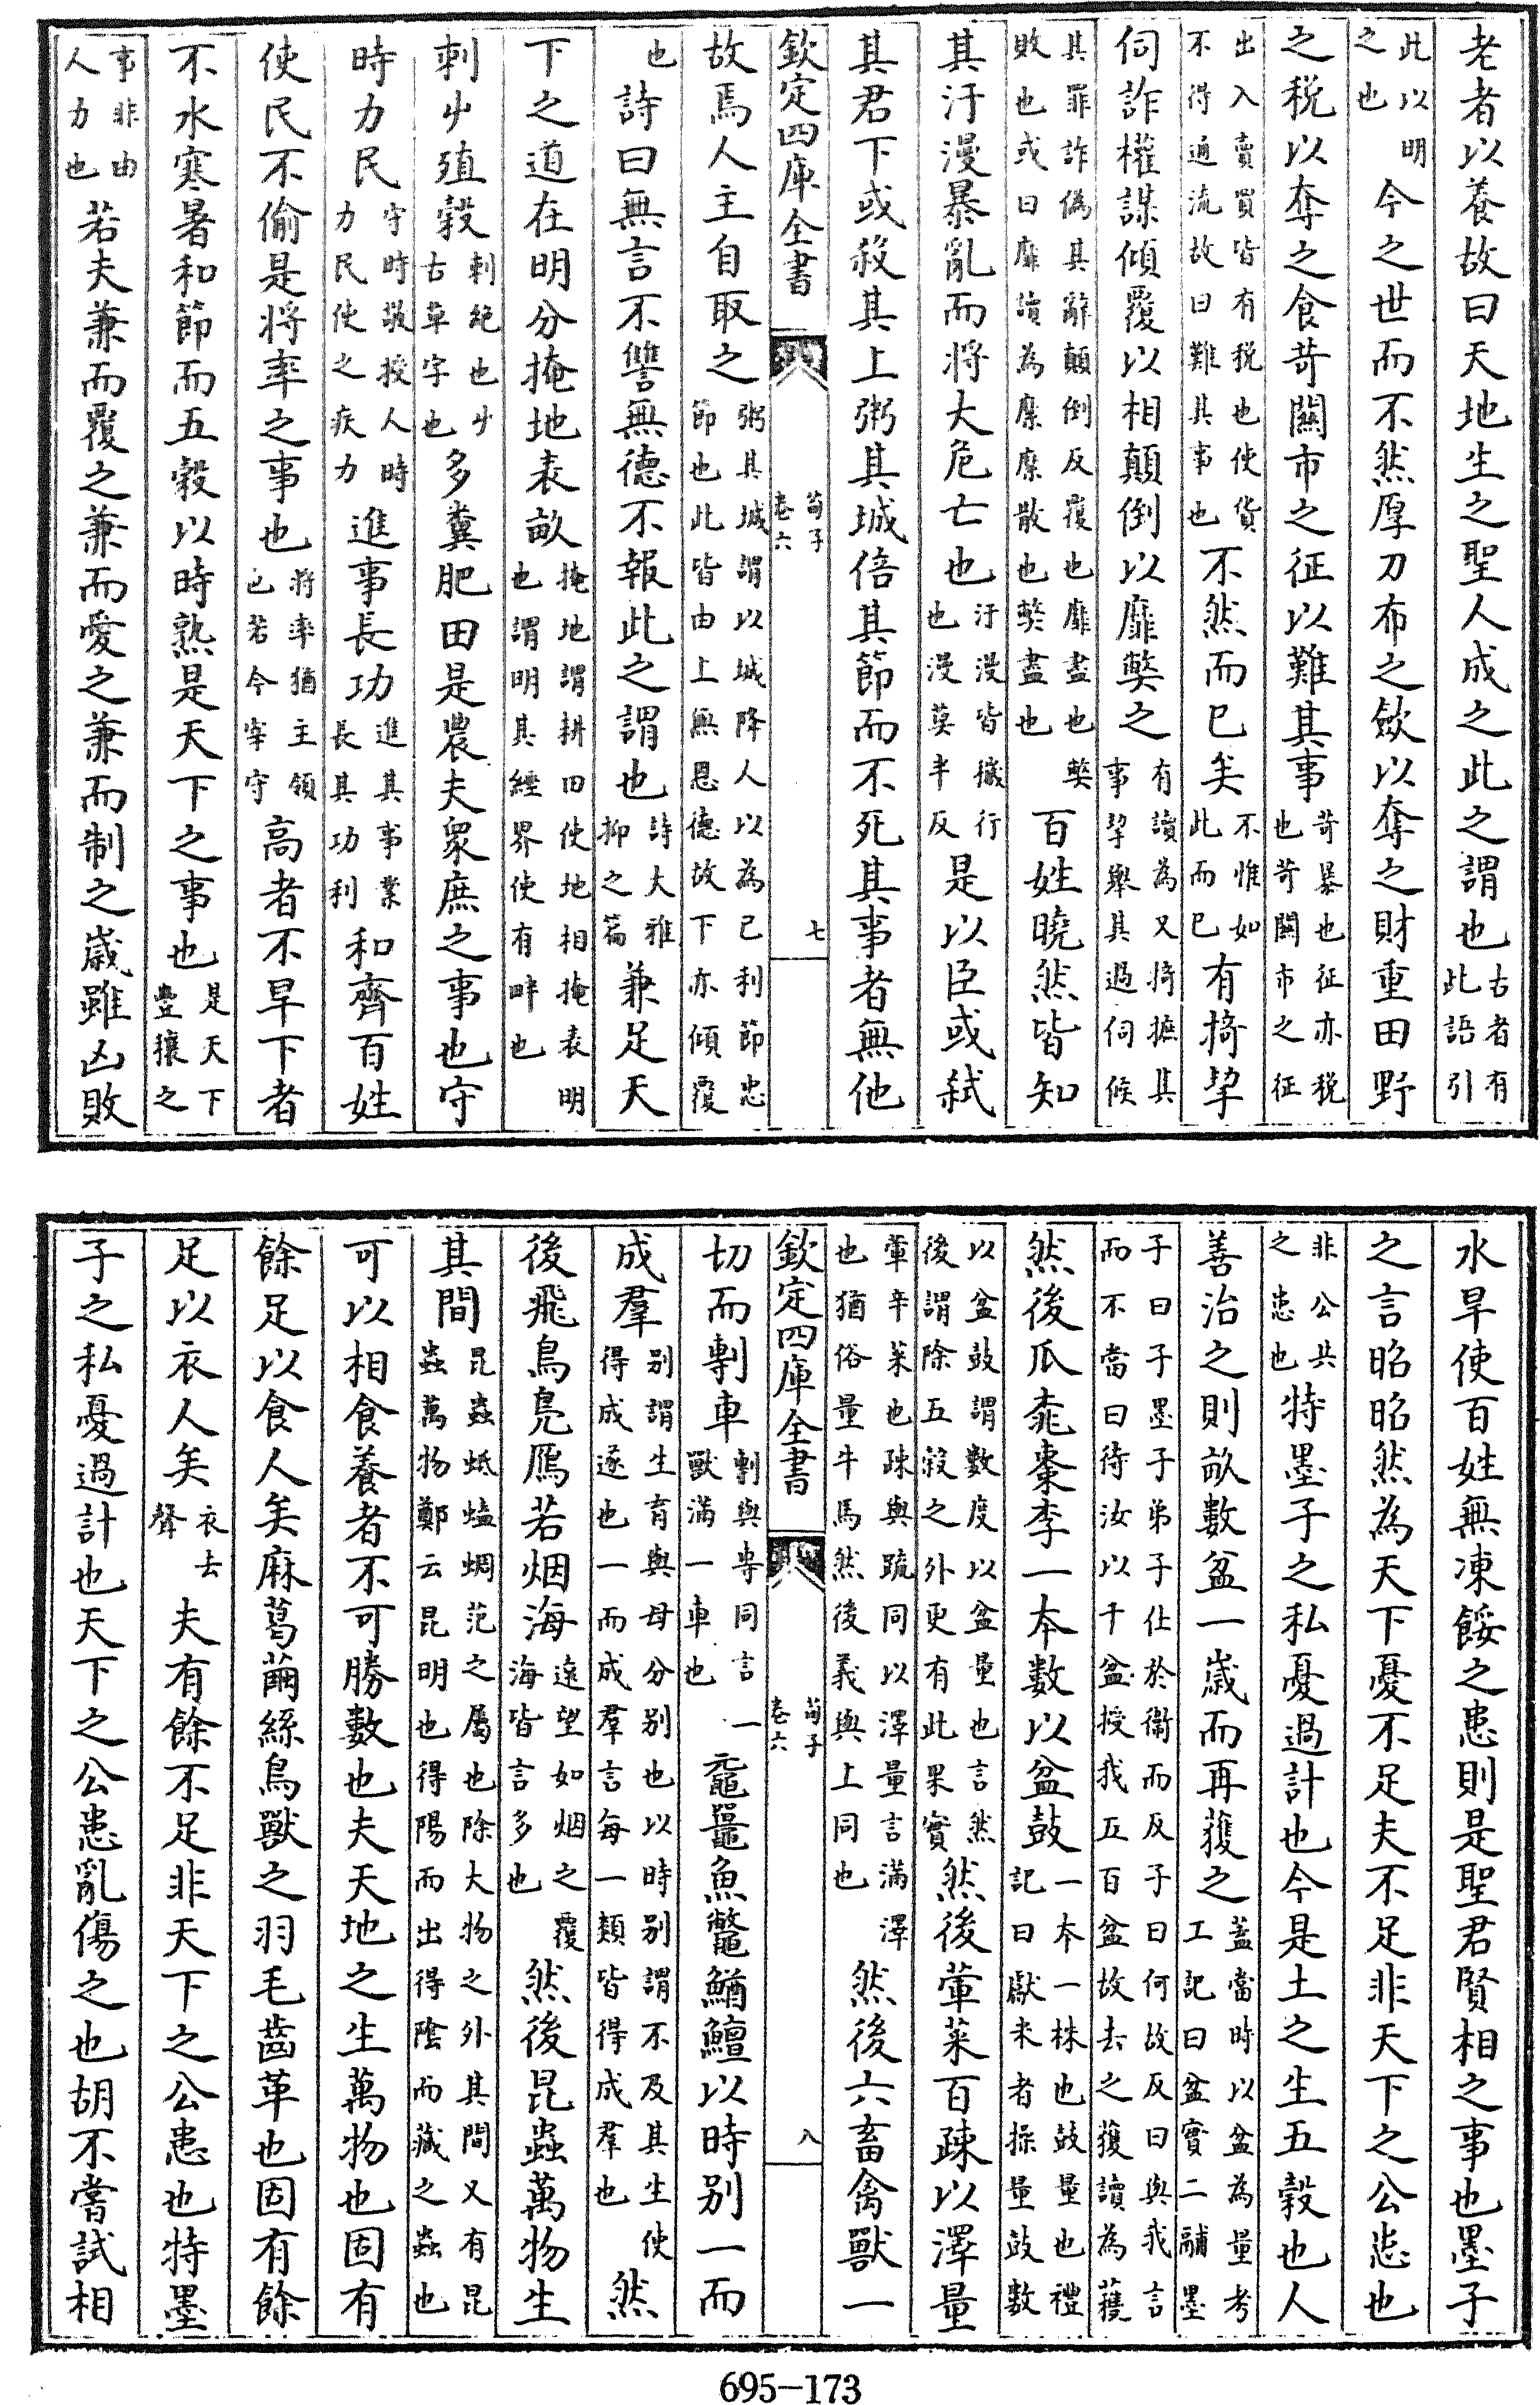 老者以養故曰天地生之聖人成之此之謂也古者有此語引
此以明之也今之世而不然厚刀布之斂以奪之財重田野
之稅以奪之食苛關市之征以難其事苛暴也征亦稅也苛關市之征
出入賣買皆有稅也使貨不得通流故曰難其事也不然而已矣不惟如此而已有掎挈
伺詐權謀傾覆以相顛倒以靡獘之有讀為又掎摭其事挈舉其過伺候
其罪詐偽其辭顛倒反覆也靡盡也獘敗也或曰靡讀為糜糜散也獘盡也百姓曉然皆知
其汙漫暴亂而將大危亡也汙漫皆穢行也漫莫半反是以臣或弑
其君下或殺其上粥其城倍其節而不死其事者無他
欽定四庫全書 荀子卷六 七
故焉人主自取之粥其城謂以城降人以為己利節忠節也此皆由上無恩德故下亦傾覆
也詩曰無言不讐無德不報此之謂也詩大雅抑之篇兼足天
下之道在明分掩地表畝掩地謂耕田使地相掩表明也謂明其經界使有畔也
刺屮殖穀刺絶也屮古草字也多糞肥田是農夫衆庶之事也守
時力民守時敬授人時力民使之疾力進事長功進其事業長其功利和齊百姓
使民不偷是將率之事也將率猶主領也若今宰守高者不旱下者
不水寒暑和節而五穀以時熟是天下之事也是天下豐穰之
事非由人力也若夫兼而覆之兼而愛之兼而制之歲雖凶敗
水旱使百姓無凍餒之患則是聖君賢相之事也墨子
之言昭昭然為天下憂不足夫不足非天下之公患也
非公共之患也特墨子之私憂過計也今是土之生五穀也人
善治之則畝數盆一歲而再獲之蓋當時以盆為量考工記曰盆實二鬴墨
子曰子墨子弟子仕於衛而反子曰何故反曰與我言而不當曰待汝以千盆授我五百盆故去之獲讀為穫
然後瓜桃棗李一本數以盆鼓一本一株也鼓量也禮記曰獻米者操量鼓數
以盆鼓謂數度以盆量也言然後謂除五穀之外更有此果實然後葷菜百疎以澤量
葷辛菜也疎與蔬同以澤量言滿澤也猶俗量牛馬然後義與上同也然後六畜禽獸一
欽定四庫全書 荀子卷六 八
切而剸車剸與専同言一獸滿一車也黿鼉魚鼈鰌鱣以時别一而
成羣别謂生育與母分别也以時别謂不及其生使得成遂也一而成羣言每一類皆得成羣也然
後飛鳥鳧鴈若烟海逺望如烟之覆海皆言多也然後昆蟲萬物生
其間昆蟲蚳蝠蜩范之屬也除大物之外其間又有昆蟲萬物鄭云昆明也得陽而出得隂而藏之蟲也
可以相食養者不可勝數也夫天地之生萬物也固有
餘足以食人矣麻葛繭絲鳥獸之羽毛齒革也固有餘
足以衣人矣衣去聲夫有餘不足非天下之公患也特墨
子之私憂過計也天下之公患亂傷之也胡不嘗試相
695—173